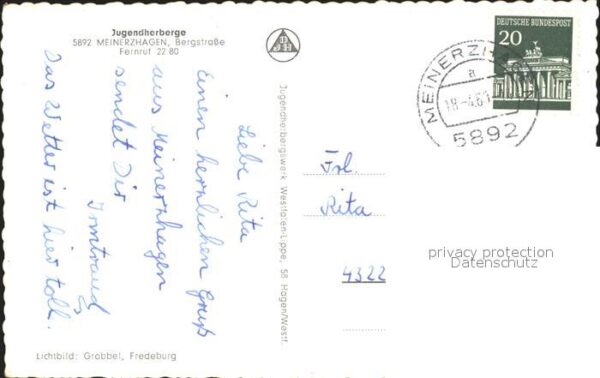 Jugendherberge
5892 MEINERZHAGEN, Bergstraße
Fernruf 22 80
DJH
Jugendherbergswerk Westfalen-Lippe, 58 Hagen/Westf.
Liebe Rita
Einen herzlichen Gruß
aus Meinerzhagen
sendet Dir
Irmtraud
Das Wetter ist hier toll.
Lichtbild: Grobbel, Fredeburg
DEUTSCHE BUNDESPOST
20
MEINERZHAGEN
a
5892
Frl.
Rita
4322
privacy protection
Datenschutz